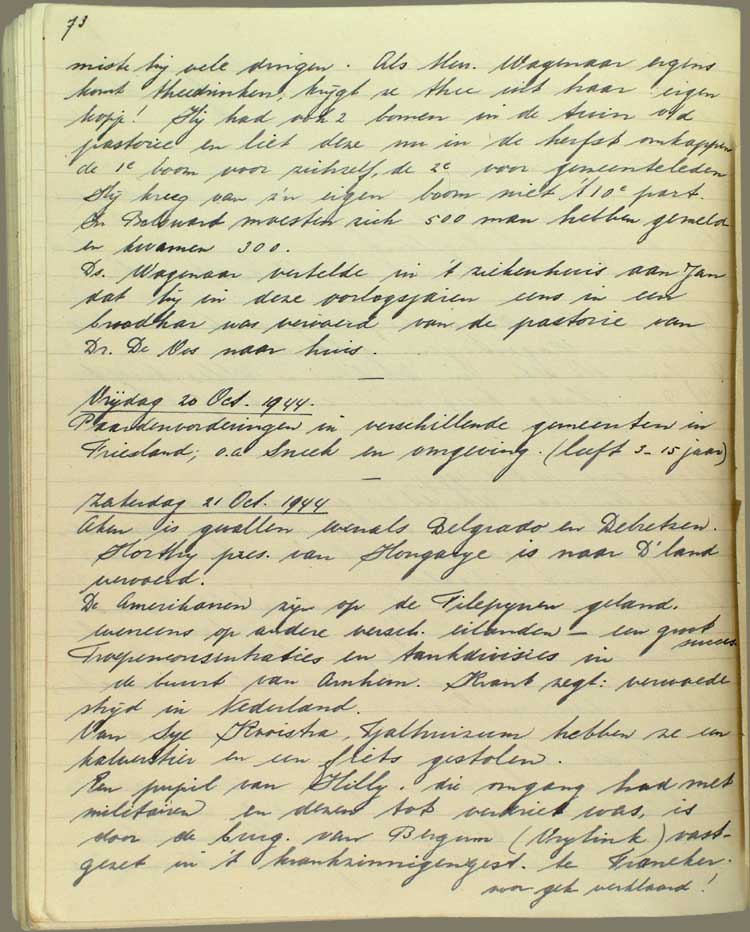 73
miste bij vele dingen. Als Mw. Wagenaar ergens
komt theedrinken, krijgt ze thee uit haar eigen
kopje! Hij had ook 2 bomen in de tuin v/d
pastorie en liet deze nu in de herfst omkappen
de 1e boom voor zichzelf, de 2e voor gemeenteleden
Hij kreeg van z'n eigen boom niet 't 10e part.
In Bolsward moesten zich 500 man hebben gemeld
en kwamen 300.
Ds. Wagenaar vertelde in 't ziekenhuis aan Jan
dat hij in deze oorlogsjaren eens in een
broodkar was vervoerd van de pastorie van
Dr. De Vos naar huis.
Vrijdag 20 Oct. 1944.
Paardenvorderingen in verschillende gemeenten in
Friesland; o.a. Sneek en omgeving. (leeft 3-15 jaar)
Zaterdag 21 Oct. 1944
Aken is gevallen evenals Belgrado en Debretzen.
Horthy pres. van Hongarye is naar D'land
vervoerd.
De Amerikanen zijn op de Filepynen geland.
eveneens op andere versch. eilanden – een groot
succes.
Troepenconsentraties en tankdivisies in
de buurt van Arnhem. Krant zegt: verwoede
strijd in Nederland.
Van Sije Kooistra, Tjalhuizum hebben ze een
kalverstier en een fiets gestolen.
Een pupil van Hilly, die omgang had met
militairen en dezen tot was, is
door de burg. van Bergum (Vrylink) vast-
gezet in 't krankzinnigengest. te Franeker.
voor gek verklaard!